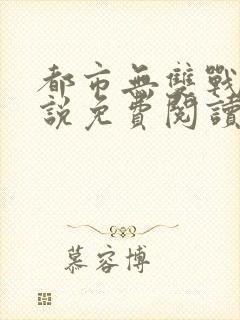 都市無雙戰
說免費閱讀
慕容博